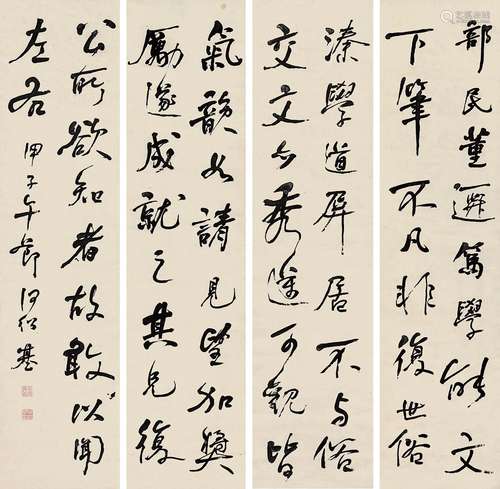 部民董遯篤學能文
下筆不凡非復世俗
溱學道屏居不与俗
交文亦秀邁可觀皆
氣韻如請見望加獎
勵遂成就之其兄復
公所欲知者故敢以聞
左右 甲子午節 何紹基